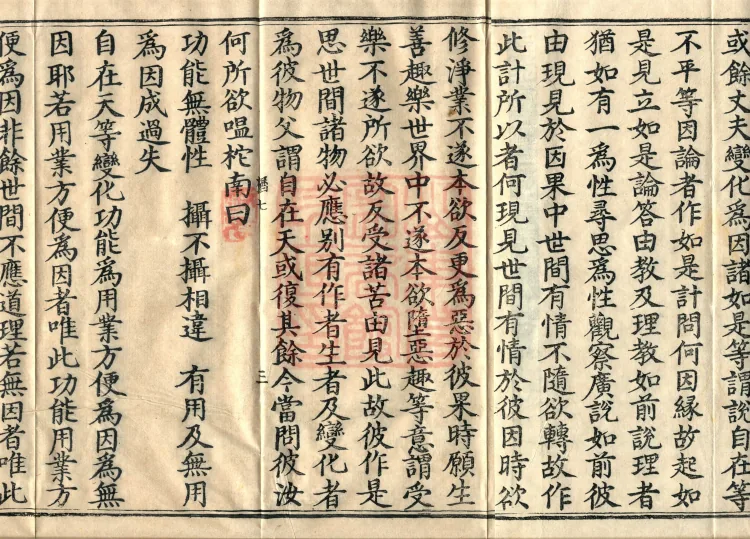 或餘丈夫變化爲因諸如是等謂說自在等
不平等因論者作如是計問何因緣故起如
是見立如是論答由教及理教如前說理者
猶如有一爲性尋思爲性觀察廣說如前彼
由現見於因果中世間有情不隨欲轉故作
此計所以者何現見世間有情於彼因時欲
修淨業不遂本欲反更爲惡於彼果時願生
善趣樂世界中不遂本欲墮惡趣等意謂受
樂不遂所欲故反受諸苦由見此故彼作是
思世間諸物必應別有作者生者及變化者
爲彼物父謂自在天或復其餘今當問彼汝
何所欲嗢柁南曰
功能無體性 攝不攝相違 有用及無用
爲因成過失
自在天等變化功能爲用業方便爲因爲無
因耶若用業方便爲因者唯此功能用業方
便爲因非餘世間不應道理若無因者唯此